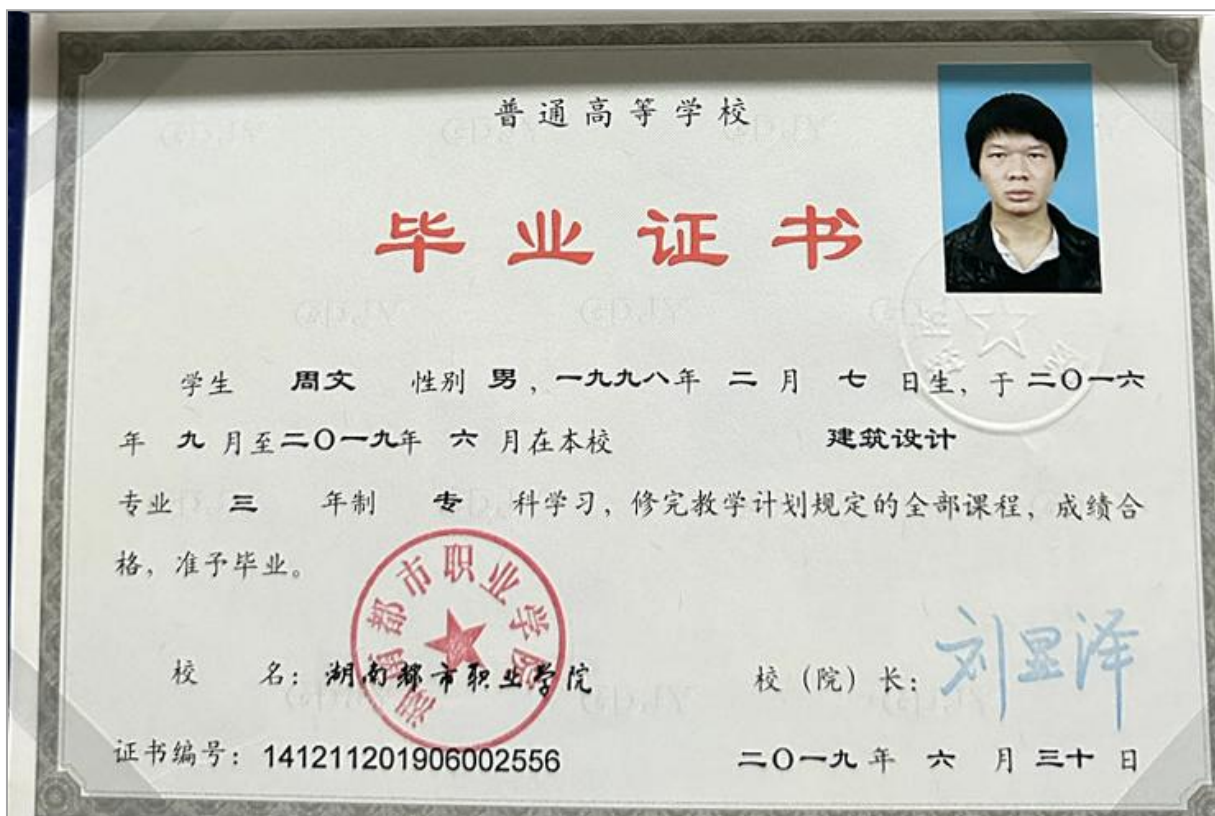 普通高等学校
毕业证书
学生 周文 性别 男，一九九八年 二 月 七 日生，于二〇一六
年 九 月至二〇一九年 六 月在本校 建筑设计
专业 三 年制 专 科学习，修完教学计划规定的全部课程，成绩合
格，准予毕业。
湖南都市职业学院
校 名：湖南都市职业学院 校（院）长：刘显泽
证书编号：141211201906002556 二〇一九年 六 月 三十 日